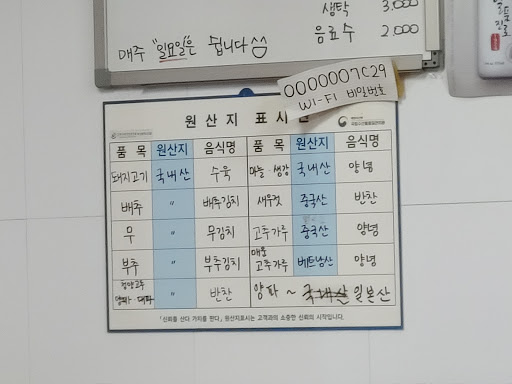 생탁 3.000
음료수 2.000
매주 "일요일"은 쉽니다
0000007C29
WI-FI 비밀번호
원산지 표시판
품 목 원산지 음식명 품 목 원산지 음식명
돼지고기 국내산 수육 마늘·생강 국내산 양념
배추 〃 배추김치 새우젓 중국산 반찬
무 〃 무김치 고추가루 중국산 양념
부추 〃 부추김치 매운고추가루 베트남산 양념
청양고추 양파·대파 〃 반찬 양파 ~ 국내산 일본산
「신뢰를 산다 가치를 판다」 원산지표시는 고객과의 소중한 신뢰의 시작입니다.